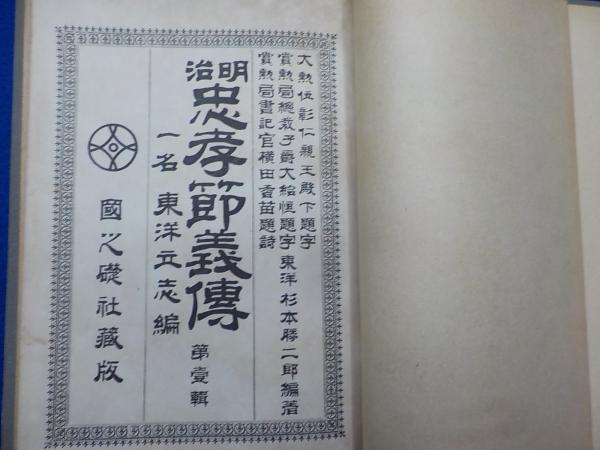 大勲位彰仁親王殿下題字
賞勲局總裁子爵大給恒題字
賞勲局書記官横田香苗題詩
東洋 杉本勝二郎編著
明治忠孝節義傳
第壹輯
一名 東洋立志編
國之礎社藏版